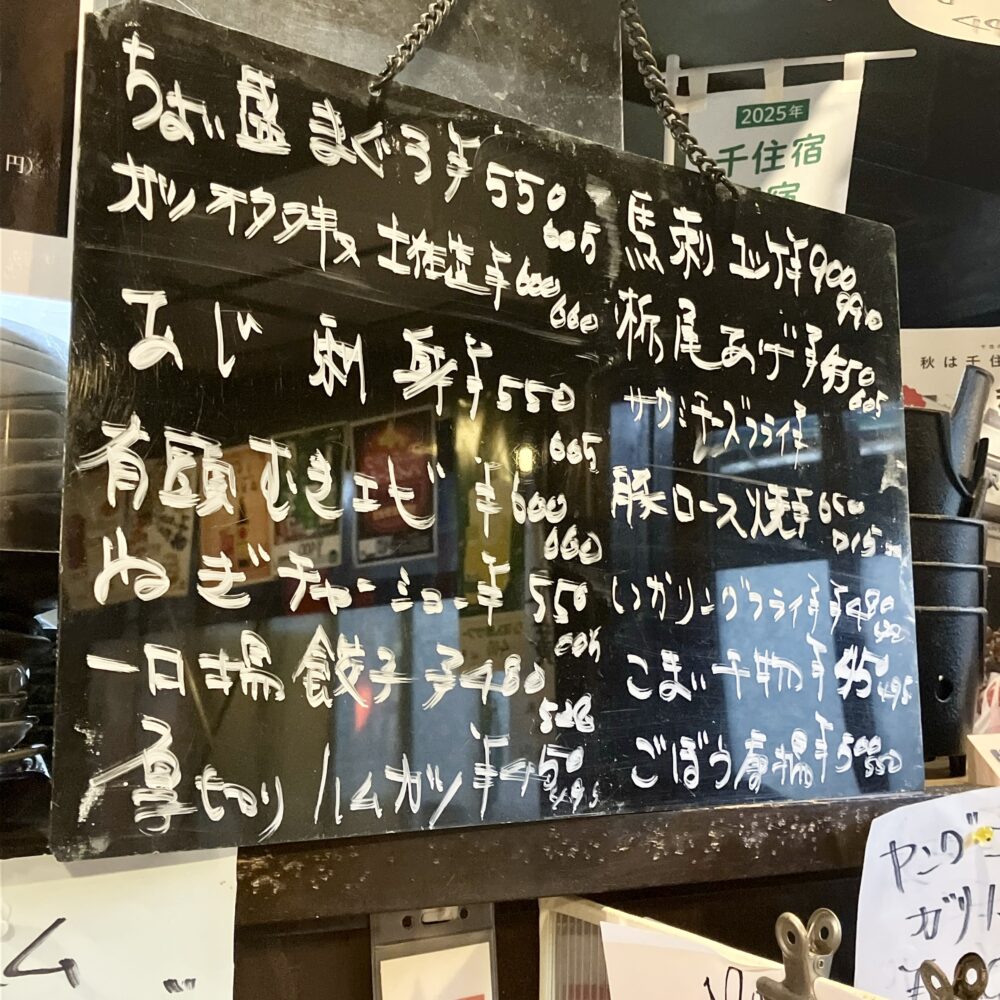 ちょい盛まぐろ¥550
605
ガツオタタキ 土佐造¥600
660
あじ刺身¥550
605
有頭むきエビ¥600
660
ねぎチャーシュー¥550
605
一口揚餃子¥480
528
厚切りハムカツ¥450
495
馬刺ユッケ¥900
990
栃尾あげ¥550
605
サワミチーズフライ¥
豚ロース焼¥650
715
いかリングフライ¥480
528
こまい干物¥450
495
ごぼう唐揚¥500
550
2025年
千住宿
宿
円)
秋は千住
ム
ヤング
ガリ